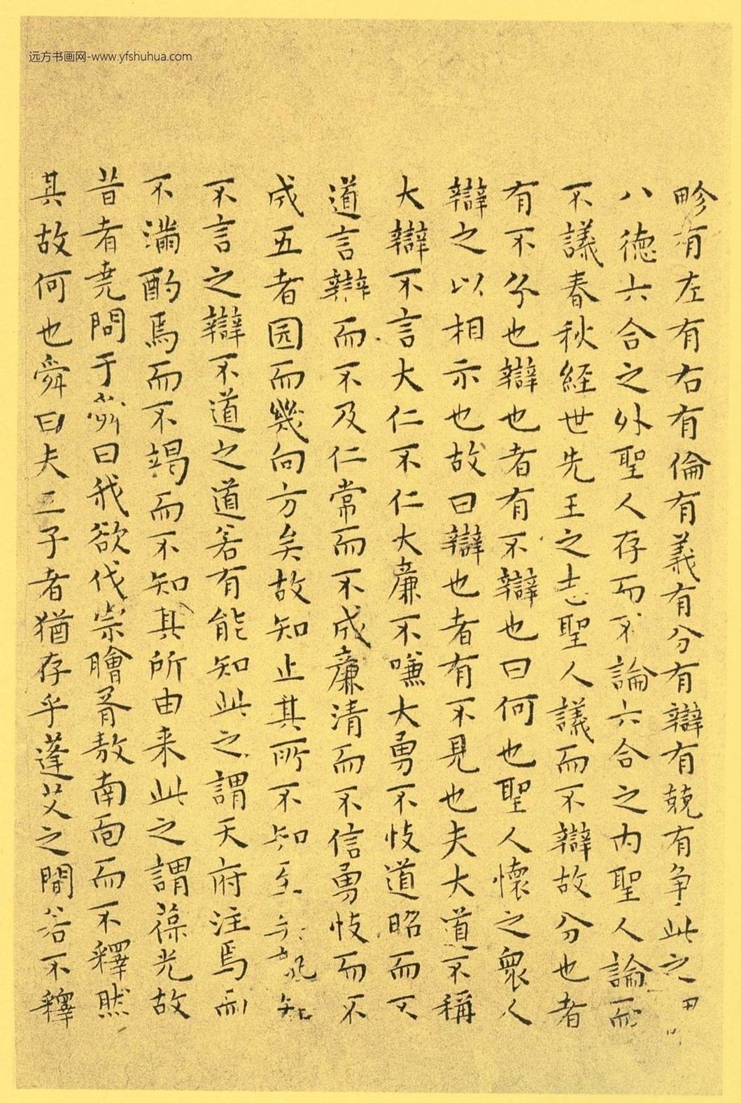 远方书画网-www.yfshuhua.com
畛有左有右有倫有義有分有辯有競有争此之
八德六合之外聖人存而不論六合之内聖人論而
不議春秋經世先王之志聖人議而不辯故分也者
有不分也辯也者有不辯也曰何也聖人懷之衆人
辯之以相示也故曰辯也者有不見也夫大道不稱
大辯不言大仁不仁大廉不嗛大勇不忮道昭而不
道言辯而不及仁常而不成廉清而不信勇忮而不
成五者园而幾向方矣故知止其所不知至矣孰知
不言之辯不道之道若有能知此之謂天府注焉而
不滿酌焉而不竭而不知其所由来此之謂葆光故
昔者堯問于舜曰我欲伐宗膾胥敖南面而不釋然
其故何也舜曰夫三子者猶存乎蓬艾之間若不釋